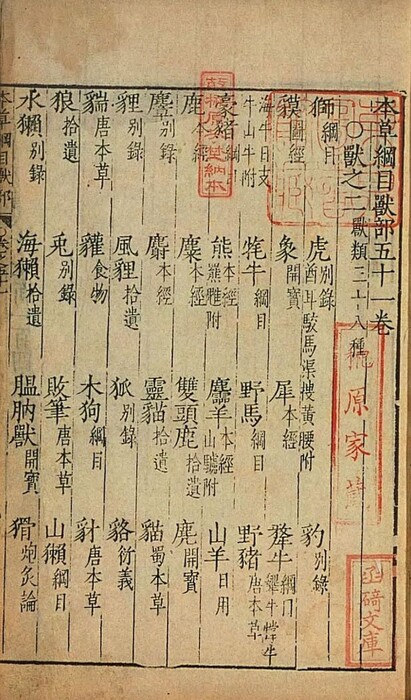 本草綱目獸部五十一卷
○獸之二獸類三十八種
獅綱目　虎別錄 酋耳 駮馬 渠搜 黃腰附　豹別錄
貘圖經　象開寶　犀本經　犛牛綱目
海牛 月支牛 山牛附　牦牛綱目　野馬綱目　野豬唐本草
豪豬綱目　熊本經 羆 附　麢羊本經 山驢附　山羊日用
鹿本經　麋本經　雙頭鹿拾遺　麂開寶
麞別錄　麝本經　靈貓拾遺　貓蜀本草
貍別錄　風貍拾遺　狐別錄　貉衍義
貒唐本草　貛食物　木狗綱目　豺唐本草
狼拾遺　兎別錄　敗筆唐本草　山獺綱目
水獺別錄　海獺拾遺　膃肭獸開寶　猾炮炙論
本草綱目獸部
原家藏
文庫